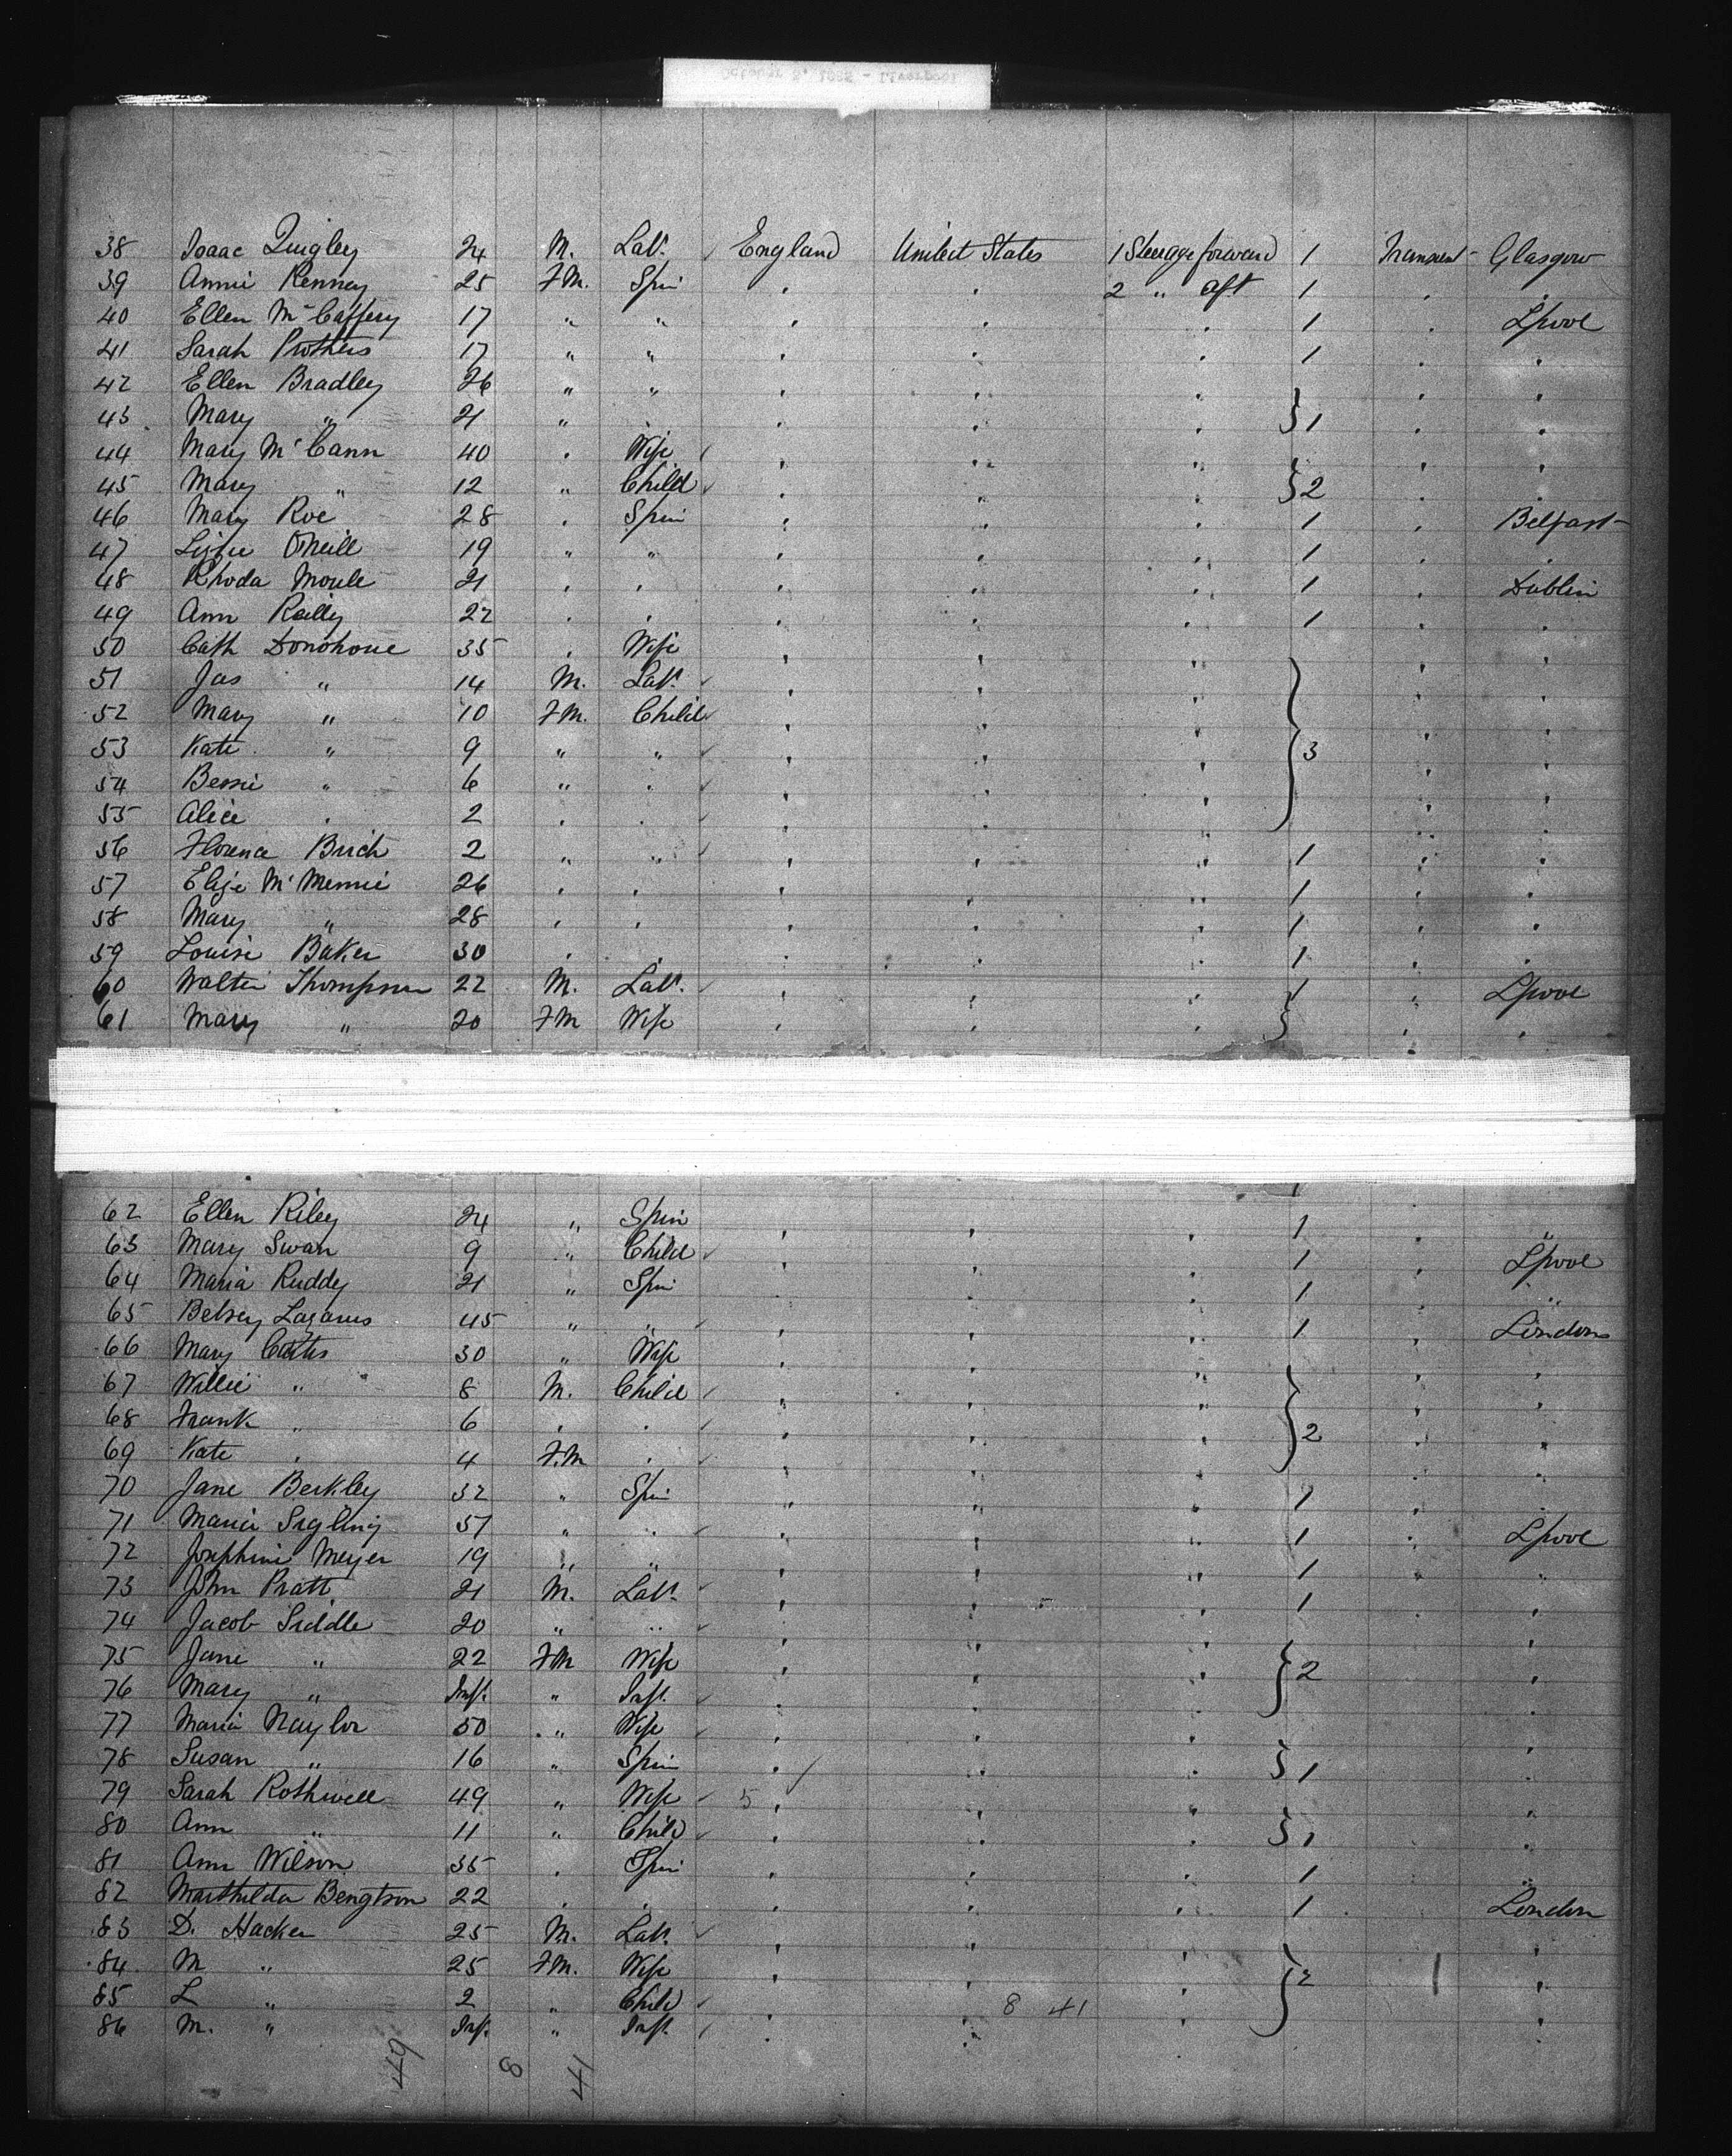 October 5, 1885 - Liverpool
38 Isaac Quigley 24 M. Labr. England United States 1 Steerage forward 1 Transient Glasgow
39 Annie Kenney 25 FM. Spin " " 2 " aft 1 " "
40 Ellen McCaffery 17 " " " " " 1 " Lpool
41 Sarah Prothers 17 " " " " " 1 " "
42 Ellen Bradley 26 " " " " " " "
43 Mary " 21 " " " " " } 1 " "
44 Mary McCann 40 " Wife " " " " "
45 Mary " 12 " Child " " " } 2 " "
46 Mary Roe 28 " Spin " " " 1 " Belfast
47 Lizzie O'Neill 19 " " " " " 1 " "
48 Rhoda Moule 21 " " " " " 1 " Dublin
49 Ann Reilly 22 " " " " " 1 " "
50 Cath Donohoue 35 " Wife " " " " "
51 Jas " 14 M. Labr. " " " " "
52 Mary " 10 FM. Child " " " " "
53 Kate " 9 " " " " " } 3 " "
54 Bessie " 6 " " " " " " "
55 Alice " 2 " " " " " " "
56 Florence Birch 2 " " " " " 1 " "
57 Elize McMennie 26 " " " " " 1 " "
58 Mary " 28 " " " " " 1 " "
59 Louise Baker 30 " " " " " 1 " "
60 Walter Thompson 22 M. Labr. " " " 1 " Lpool
61 Mary " 20 FM Wife " " " } " "
62 Ellen Riley 24 " Spin " " " 1 " "
63 Mary Swan 9 " Child " " " 1 " Lpool
64 Maria Ruddy 21 " Spin " " " 1 " "
65 Betsey Lazarus 45 " " " " " 1 " London
66 Mary 30 " Wife " " " " "
67 Willie " 8 M. Child " " " " "
68 Frank " 6 " " " " " } 2 " "
69 Kate " 4 FM " " " " " "
70 Jane Berkley 32 " Spin " " " 1 " "
71 Maria 51 " " " " " 1 " Lpool
72 Josephine Meyer 19 " " " " " 1 " "
73 John Pratt 21 M. Labr. " " " 1 " "
74 Jacob Siddle 20 " " " " " " "
75 Jane " 22 FM Wife " " " } 2 "
76 Mary " Inft. " Inft. " " " "
77 Maria Naylor 50 " Wife " " " "
78 Susan " 16 " Spin " " " } 1 "
79 Sarah Rothwell 49 " Wife 5 " " " "
80 Ann " 11 " Child " " " } 1 "
81 Ann Wilson 35 " Spin " " " 1 "
82 Marthilda Bengtson 22 " " " " " 1 London
83 D. Hacker 25 M. Labr. " " " "
84 M. " 25 FM. Wife " " " } 2 "
85 L " 2 " Child " 8 41 " "
86 M. " Inft. " Inft. " " " "
49 8 41